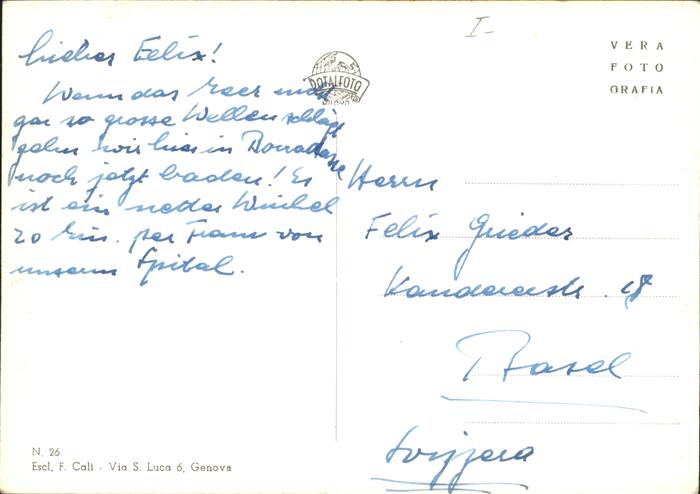 Lieber Felix!
Wenn das Meer nicht
gar so grosse Wellen schlägt
gehn wir hier in Boccadasse
noch jetzt baden! Es
ist ein netter Winkel
20 Min. per Tram von
unserm Spital.
I-
DOTALFOTO
VERA
FOTO
GRAFIA
Herrn
Felix Grieder
Kandererstr.
Basel
Svizzera
N. 26
Escl. F. Cali - Via S. Luca 6, Genova